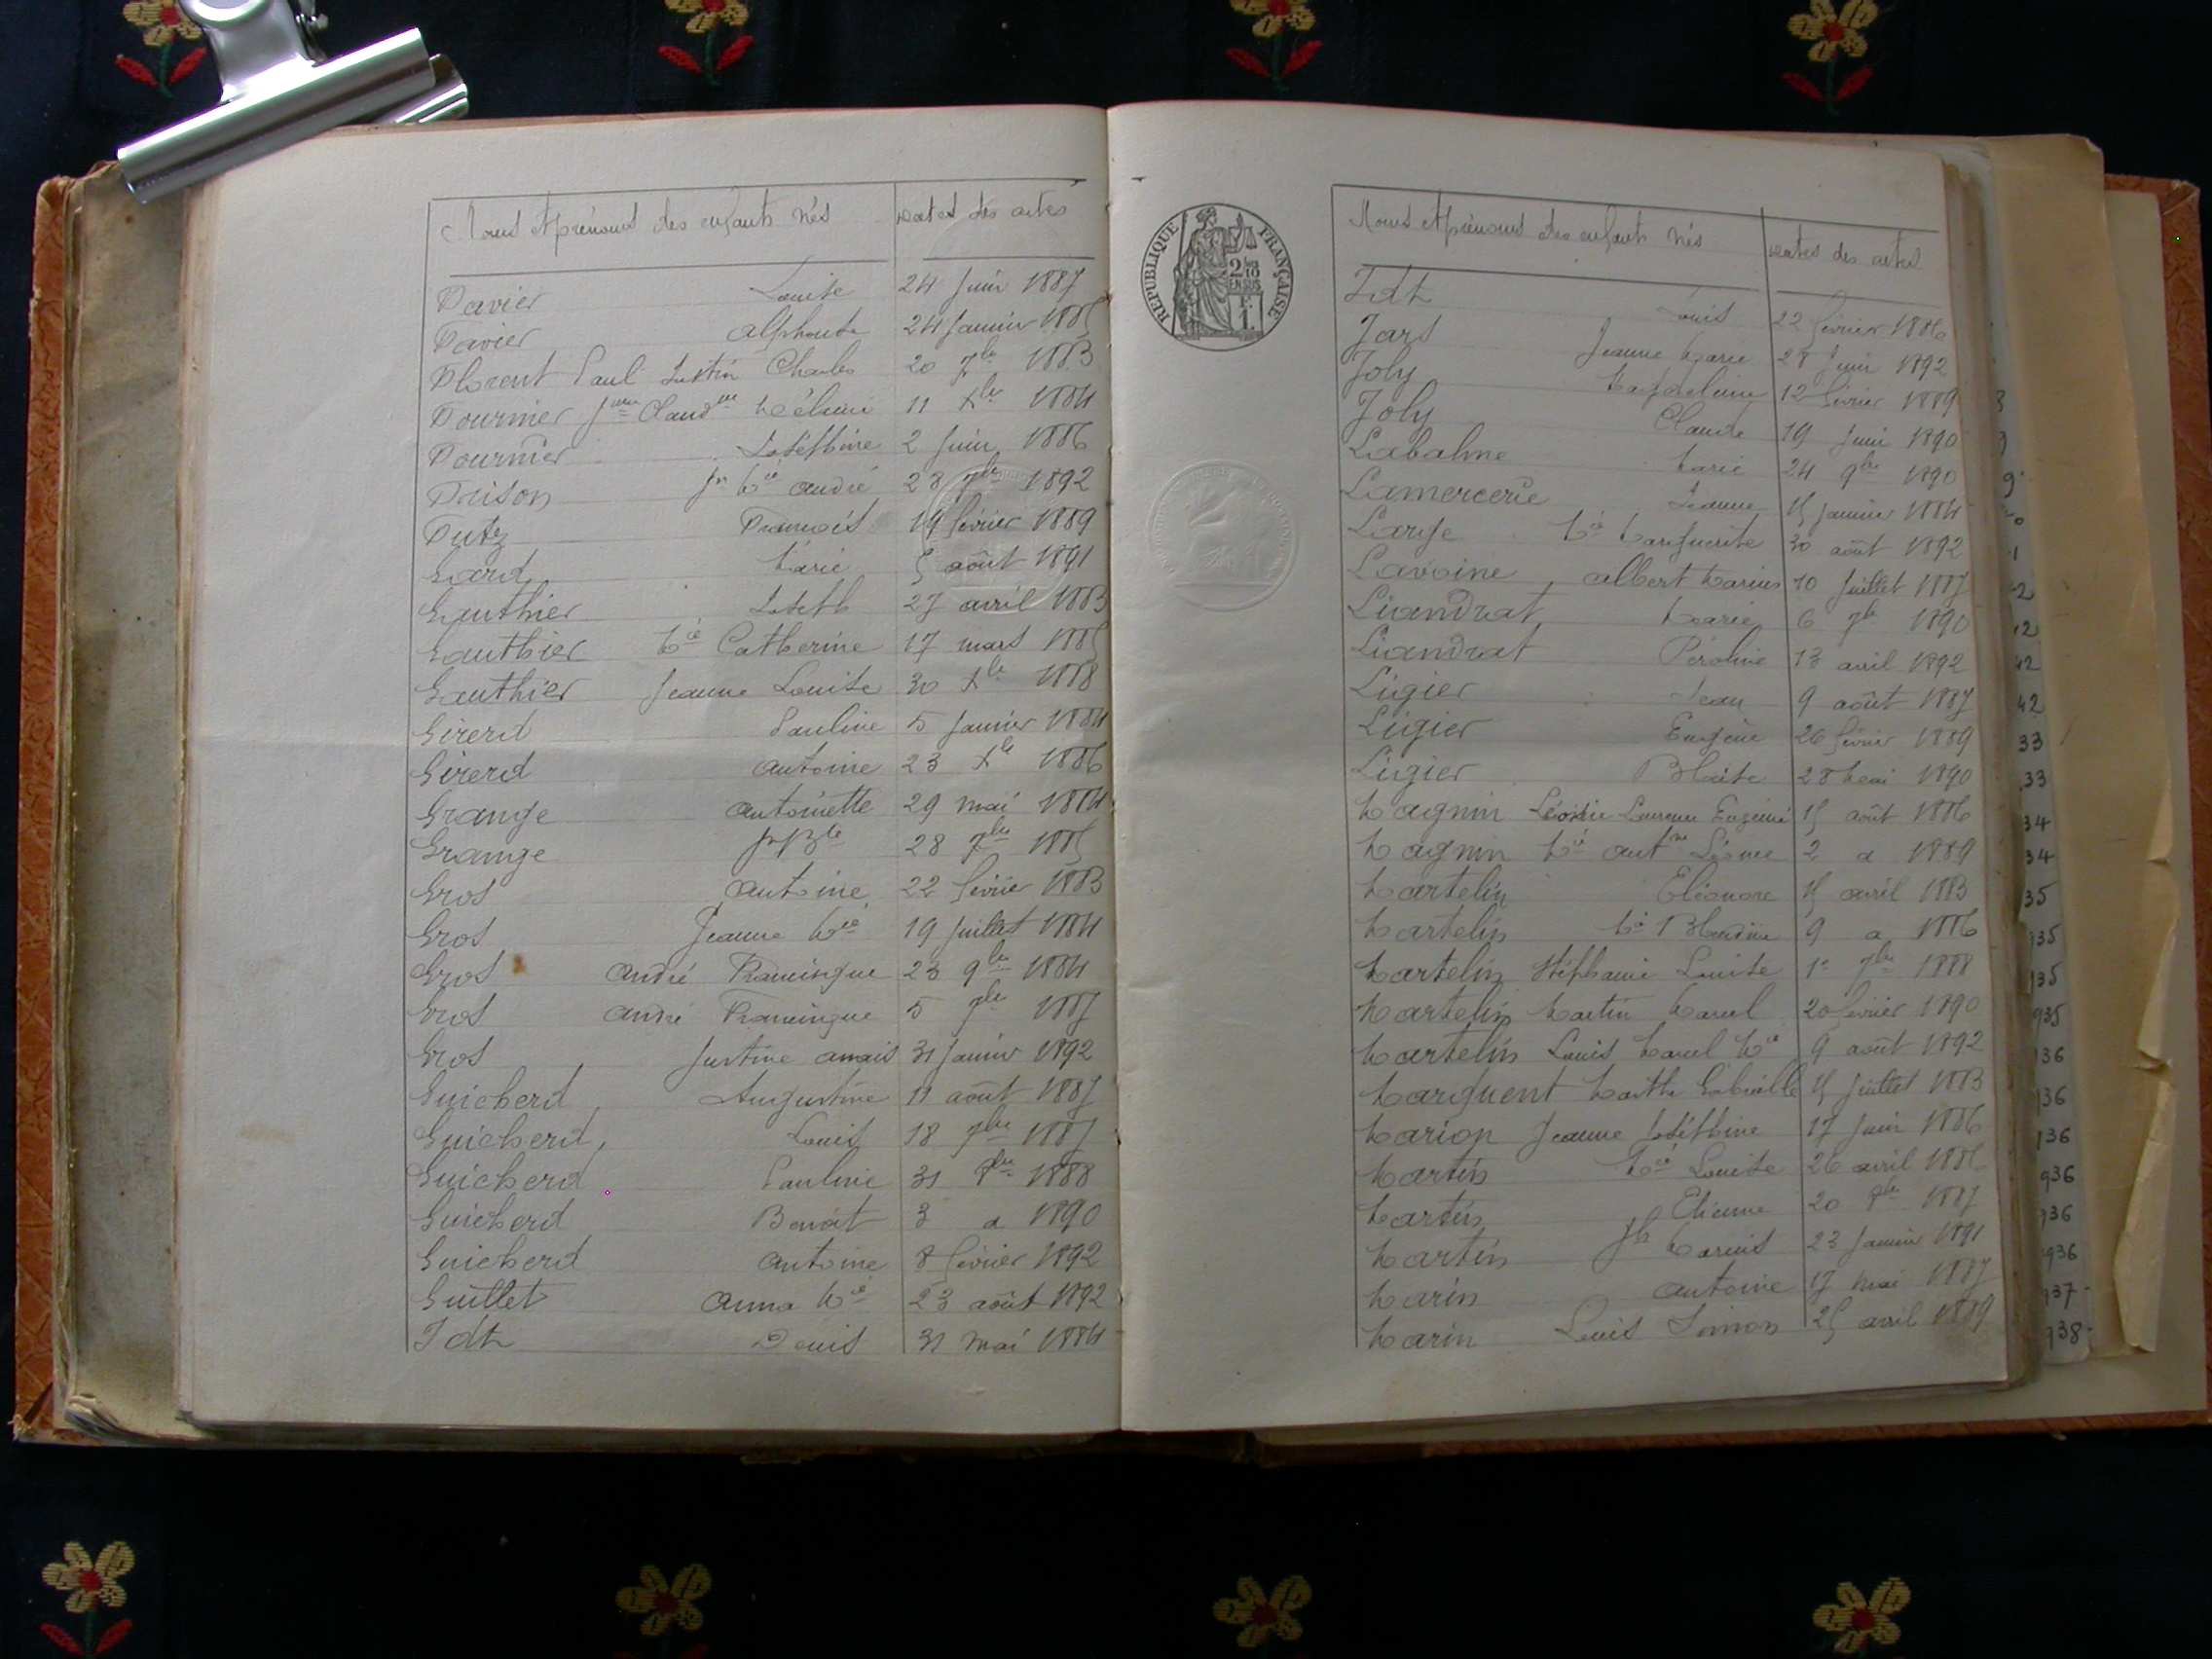 Noms et prénoms des enfants nés Dates des actes
Favier Louise 24 Juin 1887
Favier Alphonse 24 Janvier 1885
Florent Paul Justin Charles 20 7bre 1883
Fournier Jne Claudine Mélanie 11 Xbre 1884
Fournier Joséphine 2 Juin 1886
Frison Jn Mie André 28 7bre 1892
Futz François 19 février 1889
Gard Marie 5 août 1891
Gauthier Joseph 27 avril 1883
Gauthier Mie Catherine 17 mars 1885
Gauthier Jeanne Louise 30 Xbre 1888
Girerd Pauline 5 Janvier 1884
Girerd Antoine 23 Xbre 1886
Grange Antoinette 29 mai 1884
Grange Jn Bte 28 7bre 1885
Gros Antoine 22 février 1883
Gros Jeanne Mie 19 Juillet 1884
Gros André Framingue 23 9bre 1884
Gros André Framingue 5 7bre 1887
Gros Justine Anais 31 Janvier 1892
Guicherd Augustine 11 août 1887
Guicherd Louis 18 7bre 1887
Guicherd Pauline 31 8bre 1888
Guicherd Benoit 3 d 1890
Guicherd Antoine 8 février 1892
Guillet Anna Mie 23 août 1892
Idt Denis 31 mai 1884
REPUBLIQUE FRANÇAISE
2/10 EN SUS
1F.
Noms et prénoms des enfants nés Dates des actes
Idt Louis 22 février 1886
Jars Jeanne Marie 28 Juin 1892
Joly Magdeleine 12 février 1889
Joly Claude 19 Juin 1890
Labalme Marie 24 9bre 1890
Lamercerie Jeanne 15 Janvier 1884
Large Mie Marguerite 30 août 1892
Lavoine Albert Marius 10 Juillet 1887
Liandrat Marie 6 7bre 1890
Liandrat Péroline 13 avril 1892
Ligier Jean 9 août 1887
Ligier Eugène 26 février 1889
Ligier Blaise 28 Mai 1890
Magnin Léonie Laurence Eugénie 15 août 1886
Magnin Mie Antne Léonie 2 d 1889
Martelin Eléonore 15 avril 1883
Martelin Mie Blandine 9 d 1886
Martelin Stéphanie Louise 1er 7bre 1888
Martelin Martin Marcel 20 février 1890
Martelin Louis Marcel Mie 9 août 1892
Marquent Marthe Gabrielle 15 Juillet 1883
Marion Jeanne Joséphine 17 Juin 1886
Martin Mie Louise 26 avril 1886
Martin Etienne 20 8bre 1887
Martin Jh Marius 23 Janvier 1891
Marin Antoine 17 mai 1887
Marin Louis Simon 25 avril 1889
12
42
42
33
33
34
34
35
935
935
935
936
936
936
936
936
936
937
938